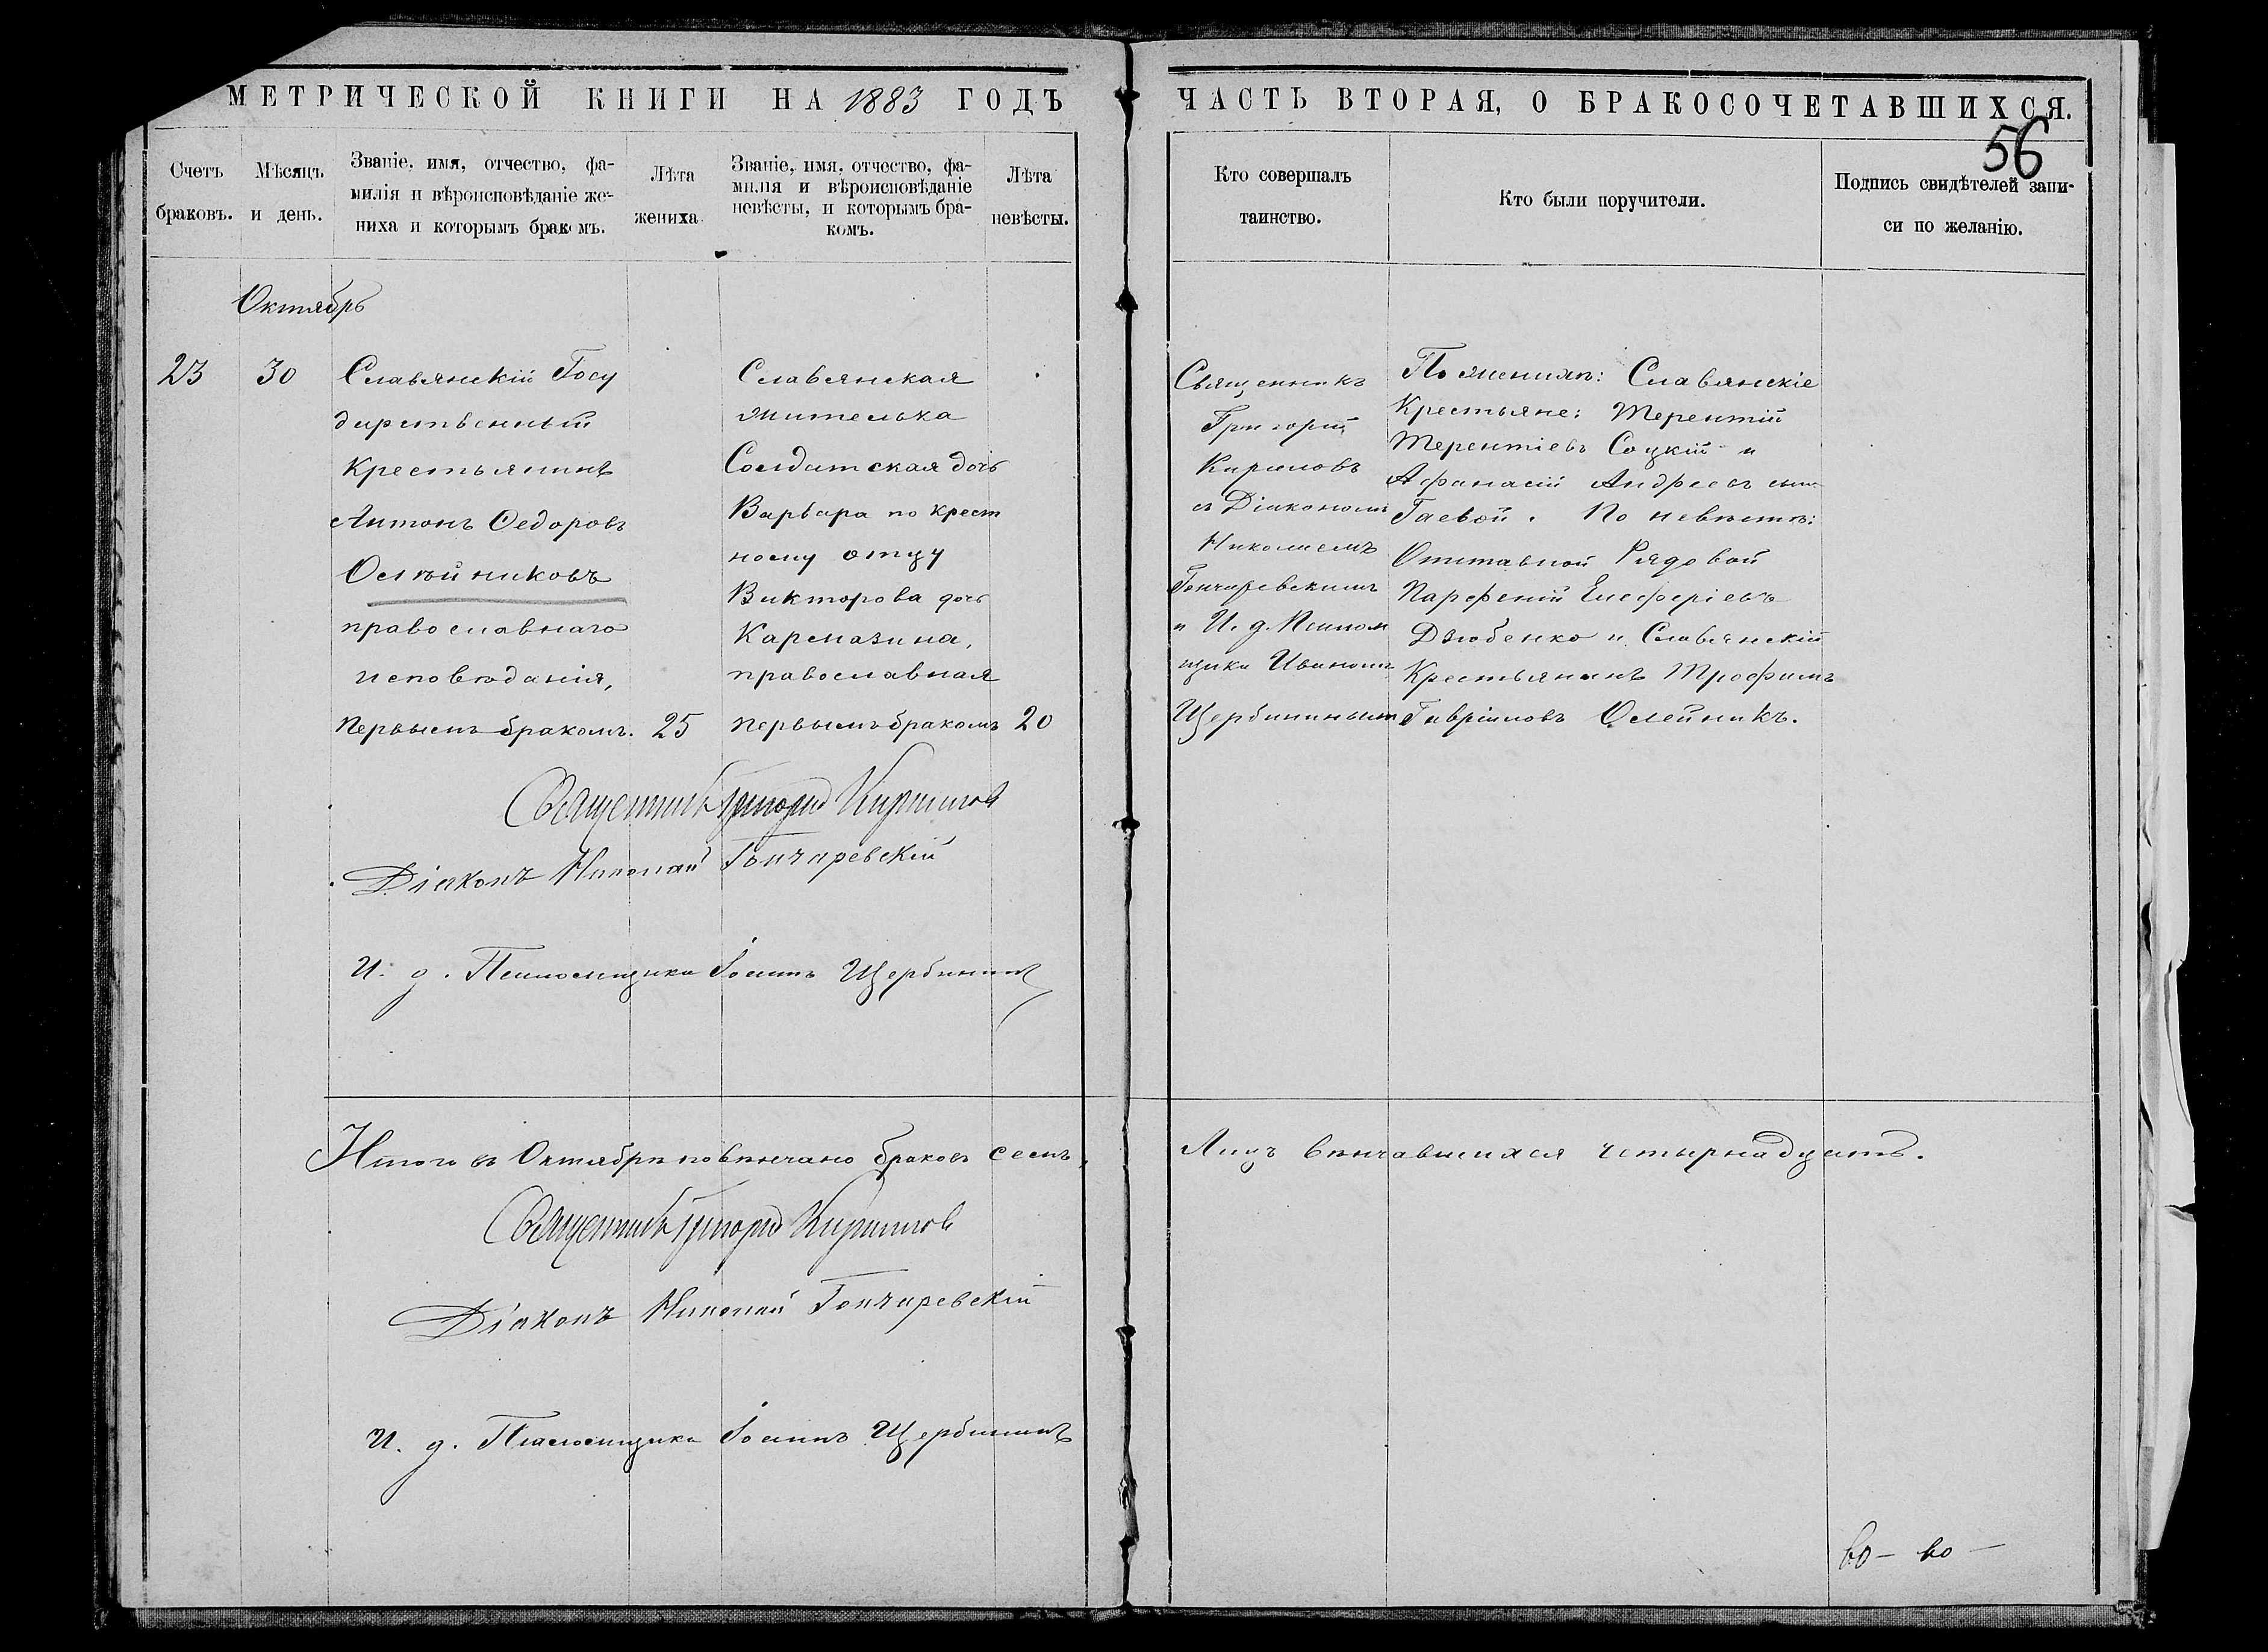 МЕТРИЧЕСКОЙ КНИГИ НА 1883 ГОДЪ
Счетъ браковъ.
Мѣсяцъ и день.
Званіе, имя, отчество, фа-
милія и вѣроисповѣданіе же-
ниха и которымъ бракомъ.
Лѣта
жениха
Званіе, имя, отчество, фа-
милія и вѣроисповѣданіе
невѣсты, и которымъ бра-
комъ.
Лѣта
невѣсты.
Октябрь
23
30
Славянскій Госу
дарственный
Крестьянинъ
Антонъ Ѳедоровъ
Олѣйниковъ
православнаго
исповѣданія,
первымъ бракомъ.
25
Славянская
жителька
Солдатская дочь
Варвара по крест
ному отцу
Викторова дочь
Кармазина,
православная
первымъ бракомъ
20
Священникъ Григорій Кириловъ
Діаконъ Николай Гончаревскій
И. д. Псаломщика Іоаннъ Щербининъ
Итого въ Октябрѣ повѣнчано браковъ семь,
Священникъ Григорій Кириловъ
Діаконъ Николай Гончаревскій
И. д. Псаломщика Іоаннъ Щербининъ
ЧАСТЬ ВТОРАЯ, О БРАКОСОЧЕТАВШИХСЯ.
56
Кто совершалъ
таинство.
Кто были поручители.
Подпись свидѣтелей запи-
си по желанію.
Священникъ
Григорій
Кириловъ
съ Діакономъ
Николаемъ
Гончаревскимъ
и И. д. Псалом
щика Иваномъ
Щербининым
По женихѣ: Славянскіе
Крестьяне: Терентій
Терентіевъ Соцкій и
Афанасій Андреевъ сынъ
Гаевой. По невѣстѣ:
Отставной Рядовой
Парфеній Елеферіевъ
Дзюбенко и Славянскій
Крестьянинъ Трофимъ
Гавріиловъ Олейникъ.
Лицъ вѣнчавшихся четырнадцать.